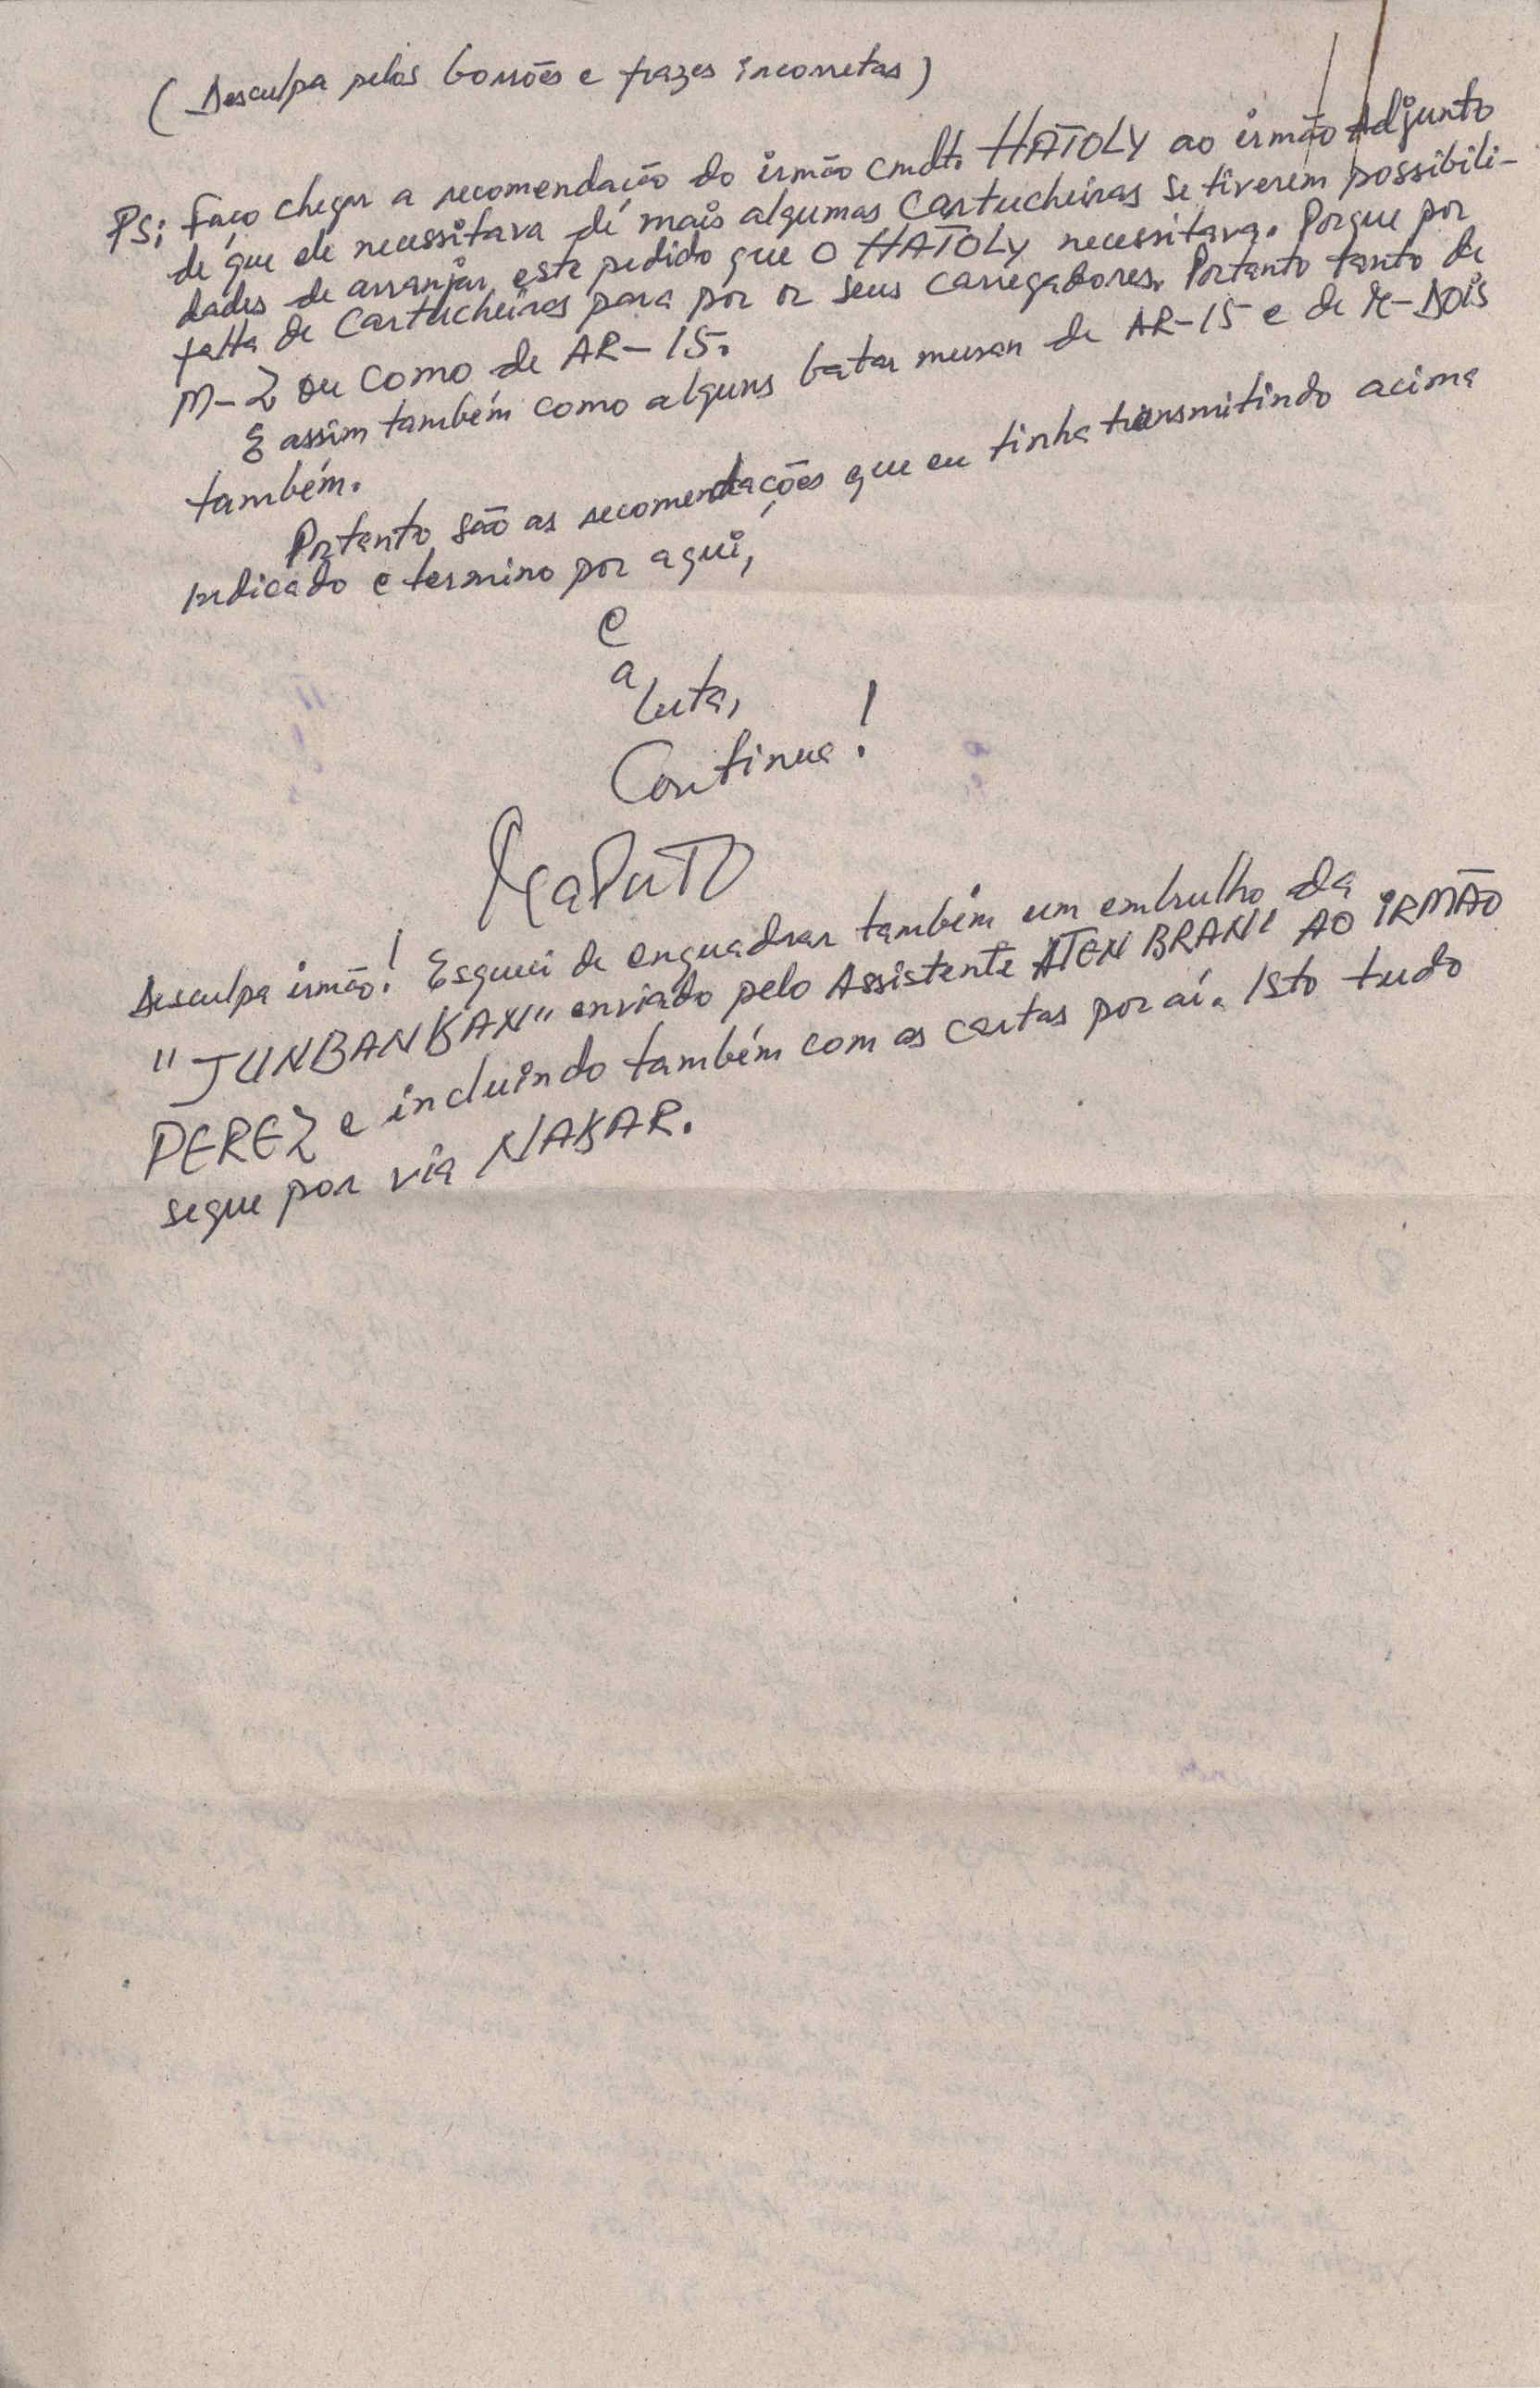 (Desculpa pelos borrões e frazes incorretas)
PS: Faço chegar a recomendação do irmão cmdt. HATOLY ao irmão Adjunto
de que ele necessitava de mais algumas cartucheiras se tiverem possibili-
dades de arranjar este pedido que o HATOLY necessitava. Porque por
falta de cartucheiras para por os seus carregadores. Portanto tanto de
M-2 ou como de AR-15.
E assim também como alguns batas musan de AR-15 e de M-DOIS
também.
Portanto são as recomendações que eu tinha transmitindo acima
Indicado e termino por aqui,
e
a
luta,
Continua!
MAPUTO
Desculpa irmão! Esqueci de enquadrar também um embrulho da
"JUNBANKAN" enviado pelo Assistente ATEN BRANI AO IRMÃO
PEREZ e incluindo também com as cartas por aí. Isto tudo
segue por via NAKAR.